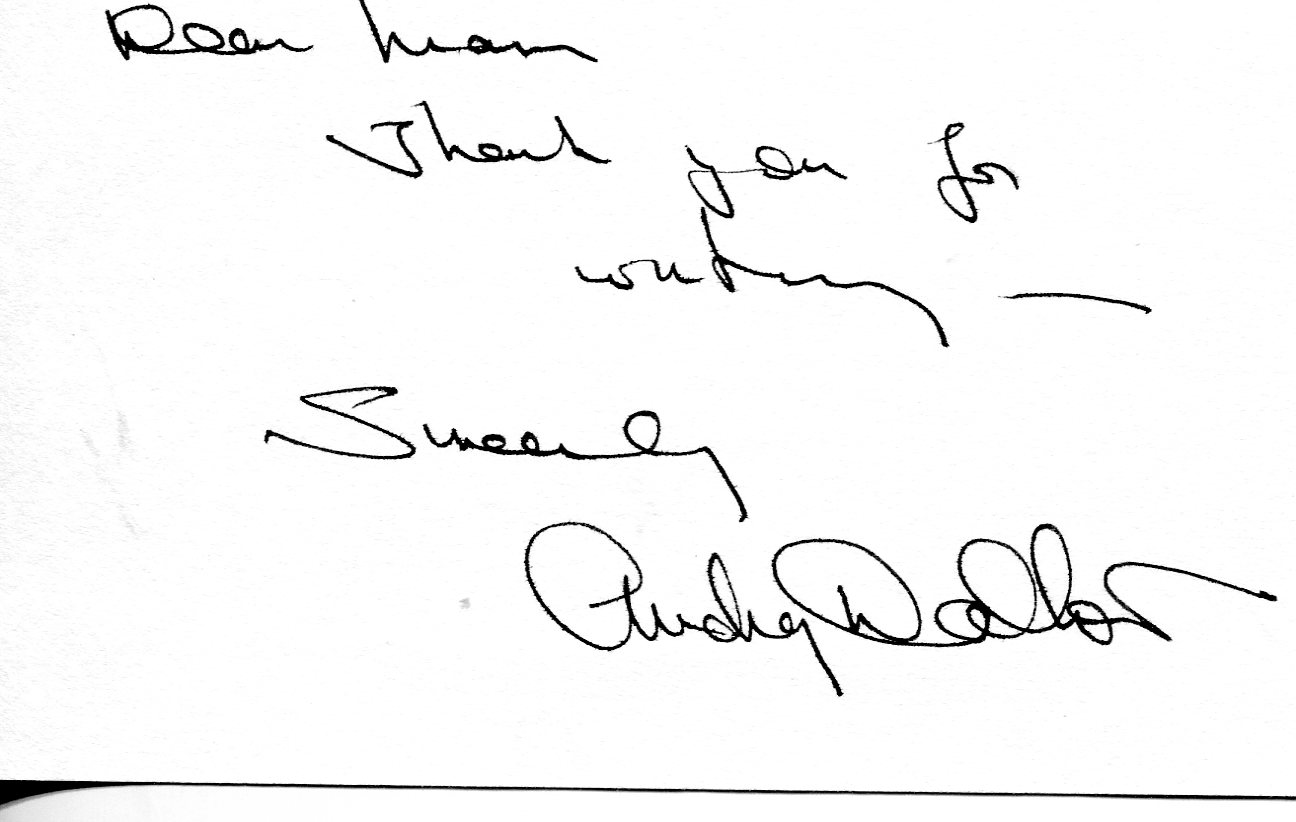 Dear
Thank you for
writing —
Sincerely
Audrey Dalton